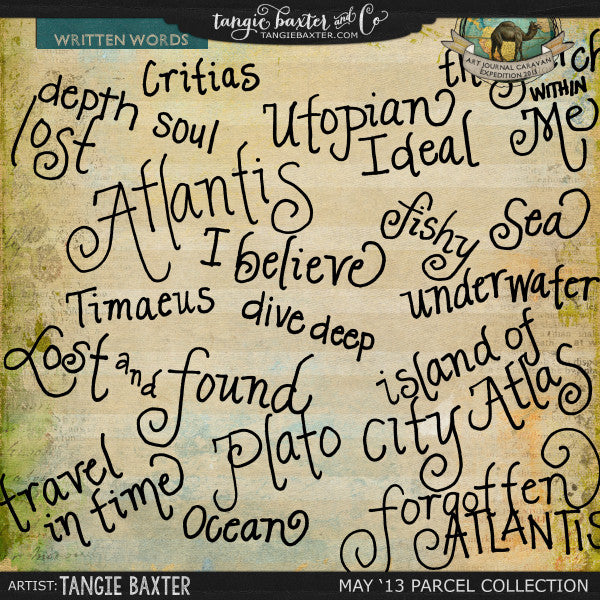 tangie baxter and Co
TANGIEBAXTER.COM
WRITTEN WORDS
ART JOURNAL CARAVAN
EXPEDITION 2013
Critias
the search
WITHIN
Me
depth
soul
lost
Utopian
Ideal
Atlantis
fishy
Sea
I believe
underwater
Timaeus
dive deep
Lost and found
island of
Atlas
Plato
City
travel
in time
Ocean
forgotten
ATLANTIS
ARTIST: TANGIE BAXTER
MAY '13 PARCEL COLLECTION